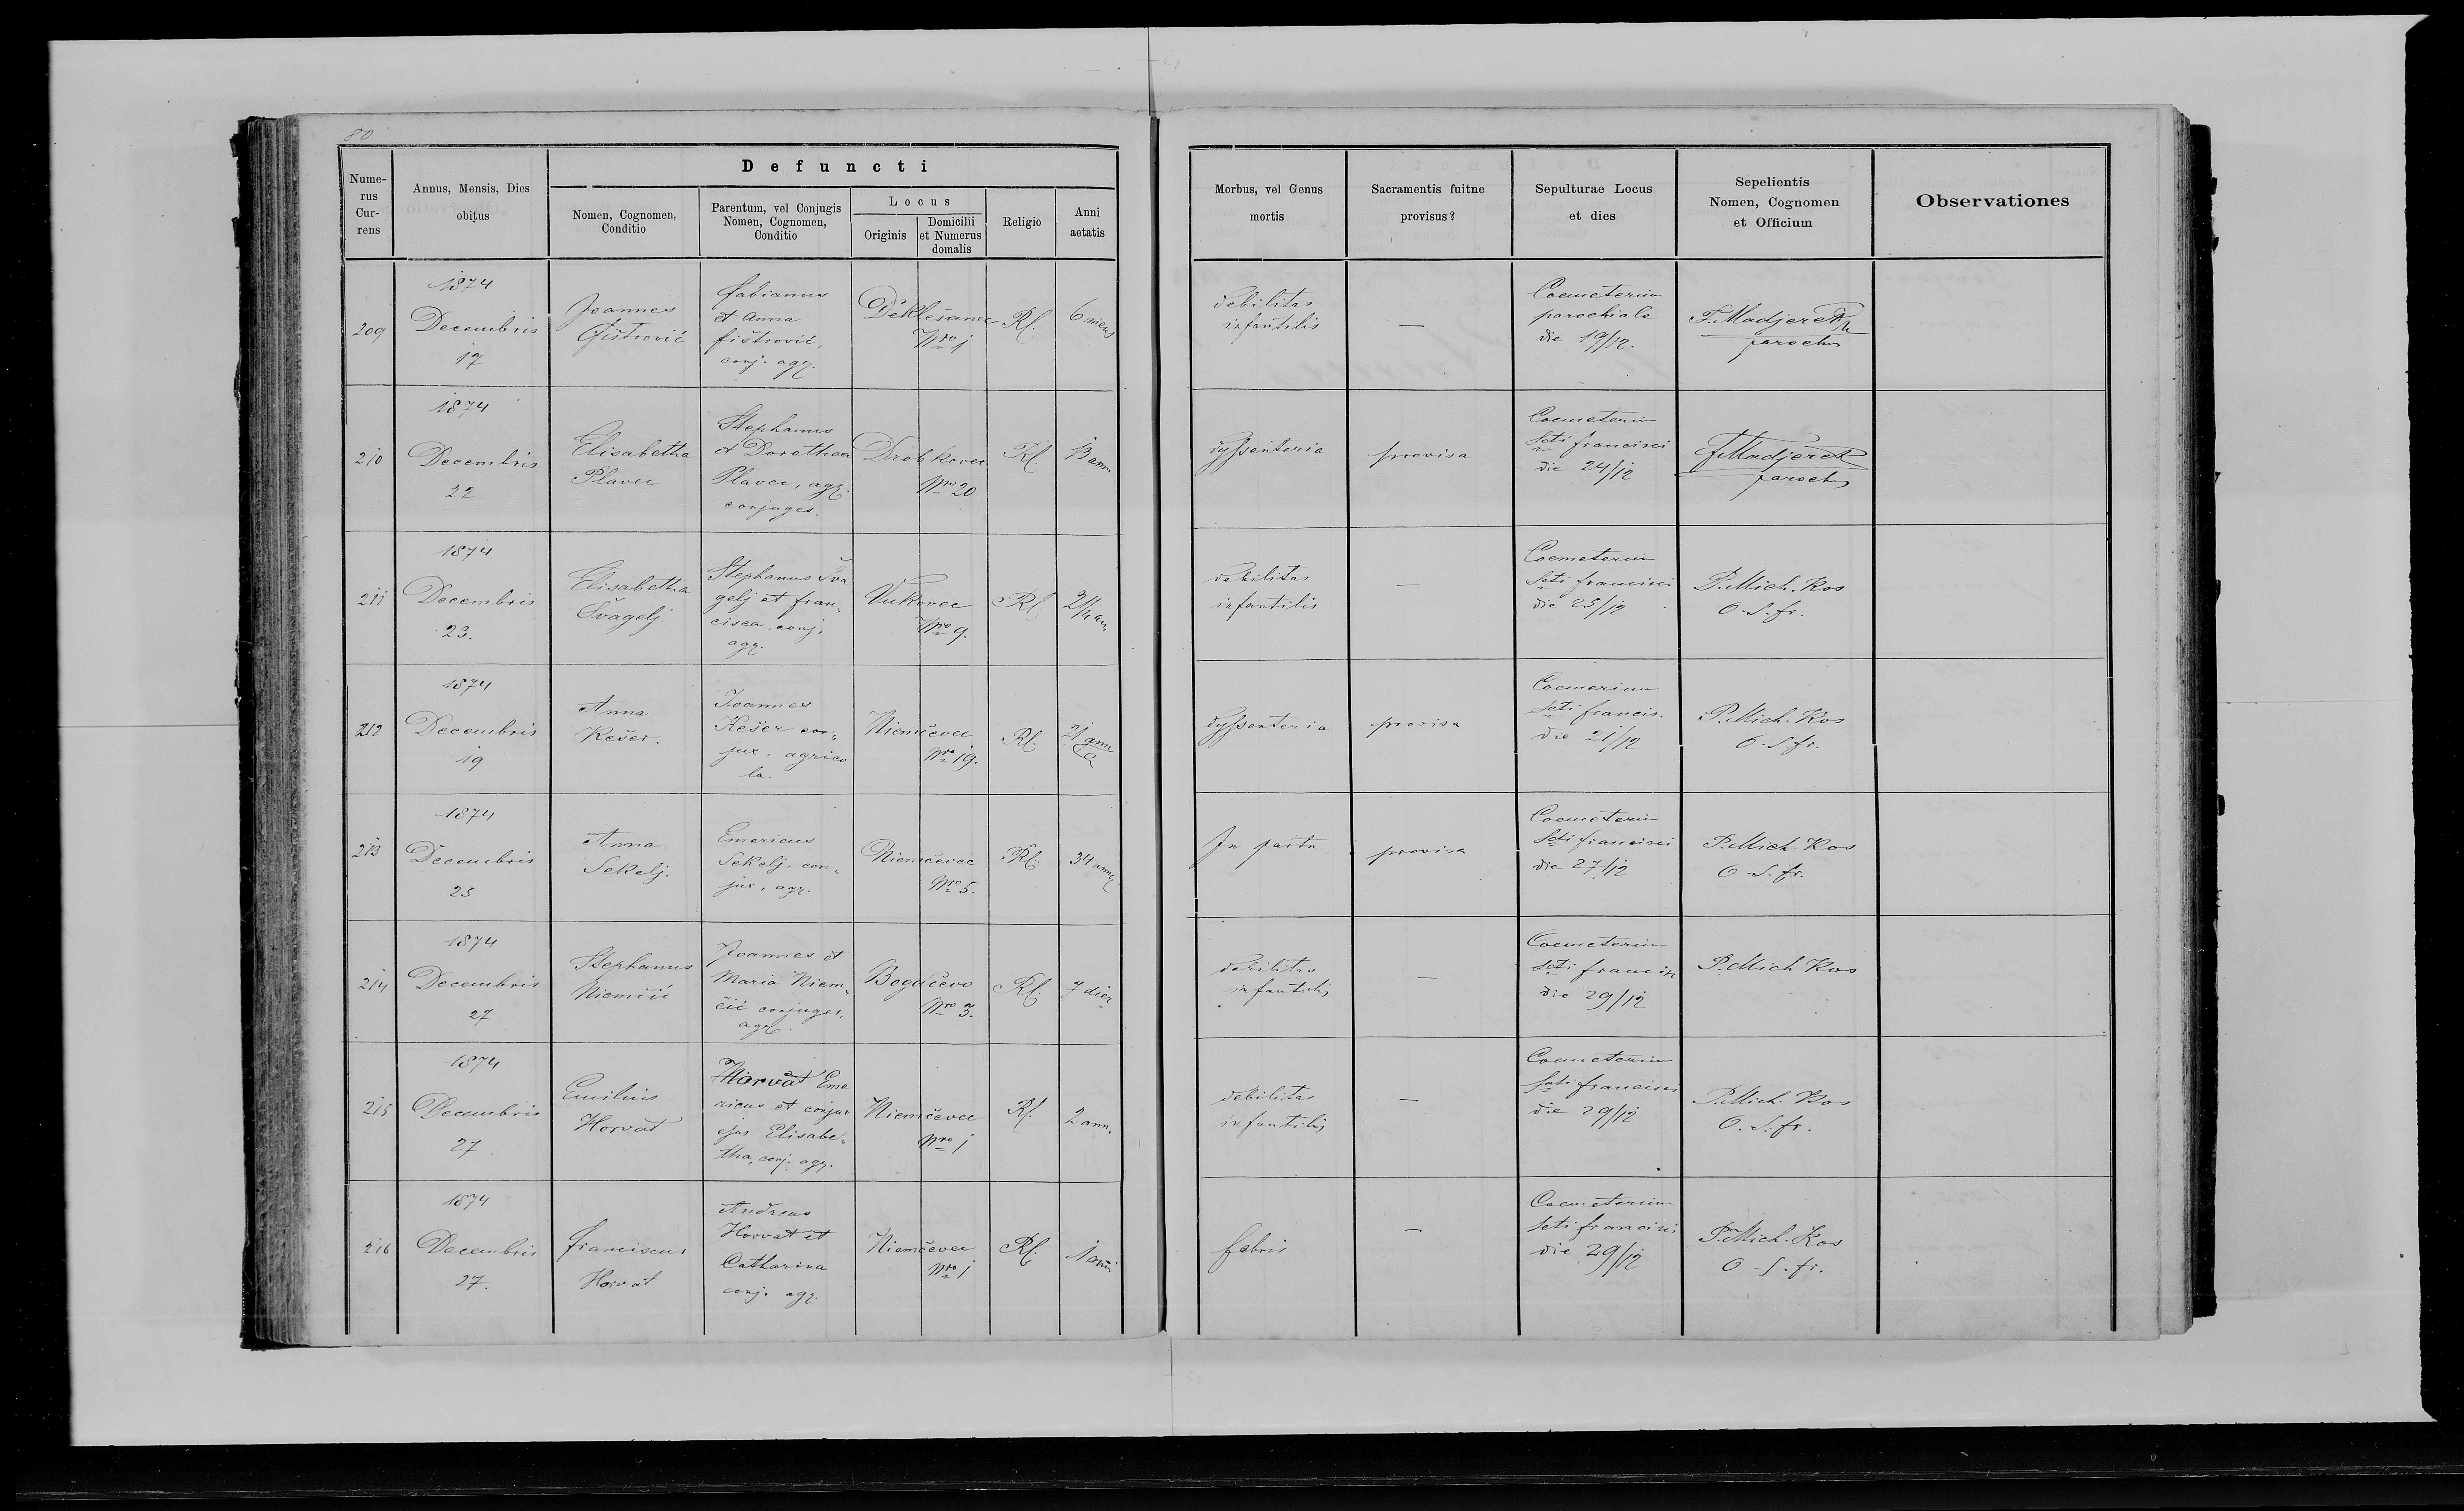 80
Defuncti
Nume-
rus
Cur-
rens
Annus, Mensis, Dies
obitus
Nomen, Cognomen,
Conditio
Parentum, vel Conjugis
Nomen, Cognomen,
Conditio
Locus
Originis
Domicilii
et Numerus
domalis
Religio
Anni
aetatis
Morbus, vel Genus
mortis
Sacramentis fuitne
provisus?
Sepulturae Locus
et dies
Sepelientis
Nomen, Cognomen
et Officium
Observationes
209
1874
Decembris
17
Joannes
Fištrović
Fabianus
et Anna
fištrović,
conj. agr.
Deklešanec
Nro 1
Rk.
6 mens
debilitas
infantilis
—
Coemeterium
parochiale
die 19/12.
F. Madjerek
parochus
210
1874
Decembris
22
Elisabetha
Plavec
Stephanus
et Dorothea
Plavec, agr.
conjuges.
Drobkovec
Nro 20
Rk.
13 ann
dyssenteria
provisa
Coemeterium
Scti francisci
die 24/12
F. Madjerek
parochus
211
1874
Decembris
23.
Elisabetha
Švagelj
Stephanus Šva
gelj et fran„
cisca, conj.
agr.
Vukovec
Nro 9.
Rk.
debilitas
infantilis
—
Coemeterium
Scti francisci
die 25/12
P. Mich. Kos
O. S. fr.
212
1874
Decembris
19
Anna
Kešer.
Joannes
Kešer con„
jux, agrico
la.
Niemčevec
Nro 19.
Rk.
21 ann
dyssenteria
provisa
Coemerium
Scti francis.
die 21/12
P. Mich. Kos
O. S. fr.
213
1874
Decembris
25
Anna
Sekelj.
Emericus
Sekelj, con„
jux, agr.
Niemčevec
Nro 5.
Rk.
34 ann
In partu
provisa
Coemeterium
Scti francisci
die 27/12
P. Mich. Kos
O. S. fr.
214
1874
Decembris
27
Stephanus
Niemčić
Joannes et
Maria Niem„
čić conjuges,
agr.
Bogačevo
Nro 3.
Rk.
7 dier
debilitas
infantilis
—
Coemeterium
Scti francisc
die 29/12
P. Mich Kos
215
1874
Decembris
27
Emilius
Horvat
Horvat Eme
ricus et conjux
ejus Elisabe„
tha, conj. agr.
Niemčevec
Nro 1
Rk.
2 ann.
debilitas
infantilis
—
Coemeterium
Scti francisci
die 29/12
P. Mich. Kos
O. S. fr.
216
1874
Decembris
27.
Franciscus
Horvat
Andreas
Horvat et
Catharina
conj. agr.
Niemčevec
Nro 1
Rk.
1 anni
febris
—
Coemeterium
Scti francisci
die 29/12
P. Mich. Kos
O. S. fr.